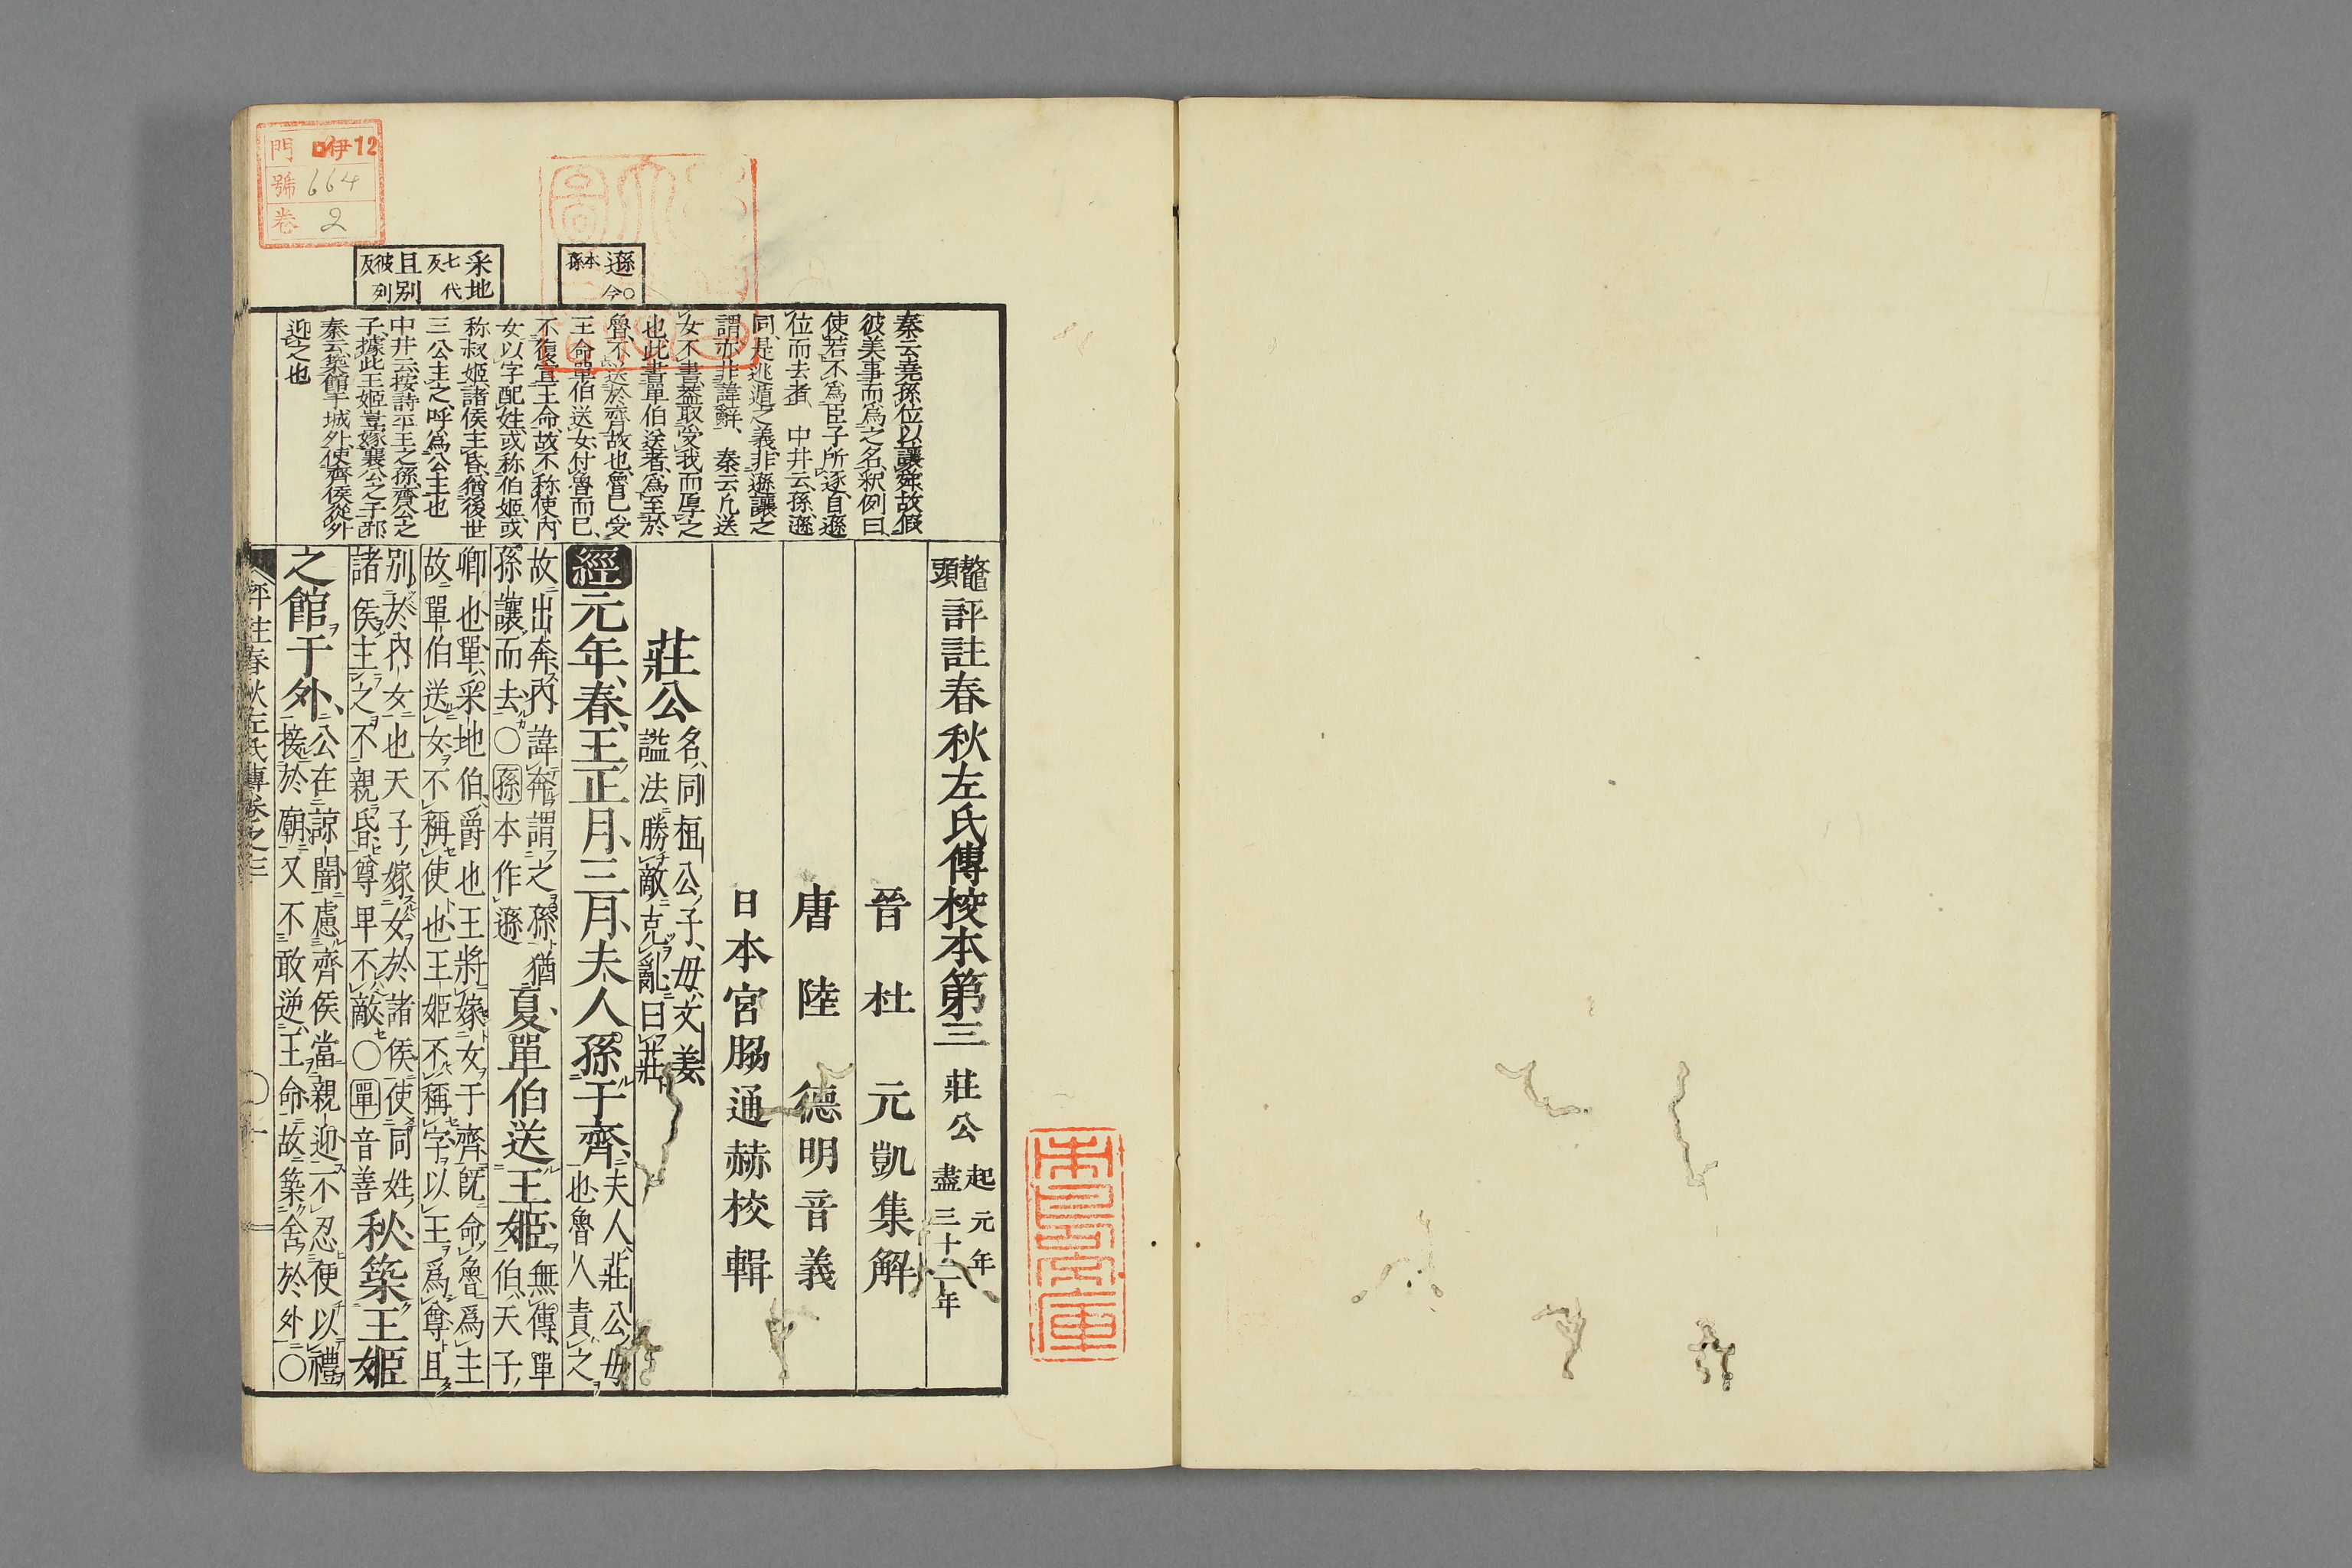 鼇頭評註春秋左氏傳校本第三 莊公 起元年盡三十二年
晉 杜 元凱集解
唐 陸 德明音義
日本宮脇通赫校輯
莊公 名同桓公子母文姜
謚法勝敵克亂曰莊
經元年春王正月三月夫人孫于齊 夫人莊公母
也魯人責之
故出奔內諱奔謂之孫猶
孫讓而去〇孫本作遜
夏單伯送王姬 無傳單
伯天子
卿也單采地伯爵也王將嫁女于齊既命魯爲主
故單伯送女不稱使也王姬不稱字以王爲尊且
別於內女也天子嫁女於諸侯使同姓
諸侯主之不親昏尊卑不敵〇單音善
秋築王姬
之館于外 公在諒闇慮齊侯當親迎不忍便以禮
接於廟又不敢逆王命故築舍於外〇
評註春秋左氏傳卷之三
〇一
秦云堯孫位以讓舜故假
彼美事而爲之名釈例曰
使若不爲臣子所逐自遜
位而去者 中井云孫遜
同是逃遁之義非遜讓之
謂亦非諱辭 秦云凡送
女不書蓋取受我而厚之
也此書單伯送者爲至於
魯不送於齊故也魯已受
王命單伯送女付魯而已
不復宣王命故不称使內
女以字配姓或称伯姬或
称叔姬諸侯主昏猶後世
三公主之呼爲公主也
中井云按詩平王之孫齊公之
子據此王姬豈嫁襄公之子耶
秦云築館于城外使齊侯從外
迎之也
遜〇今本孫
采地七代反且別彼列反
門 伊12
號 664
卷 2